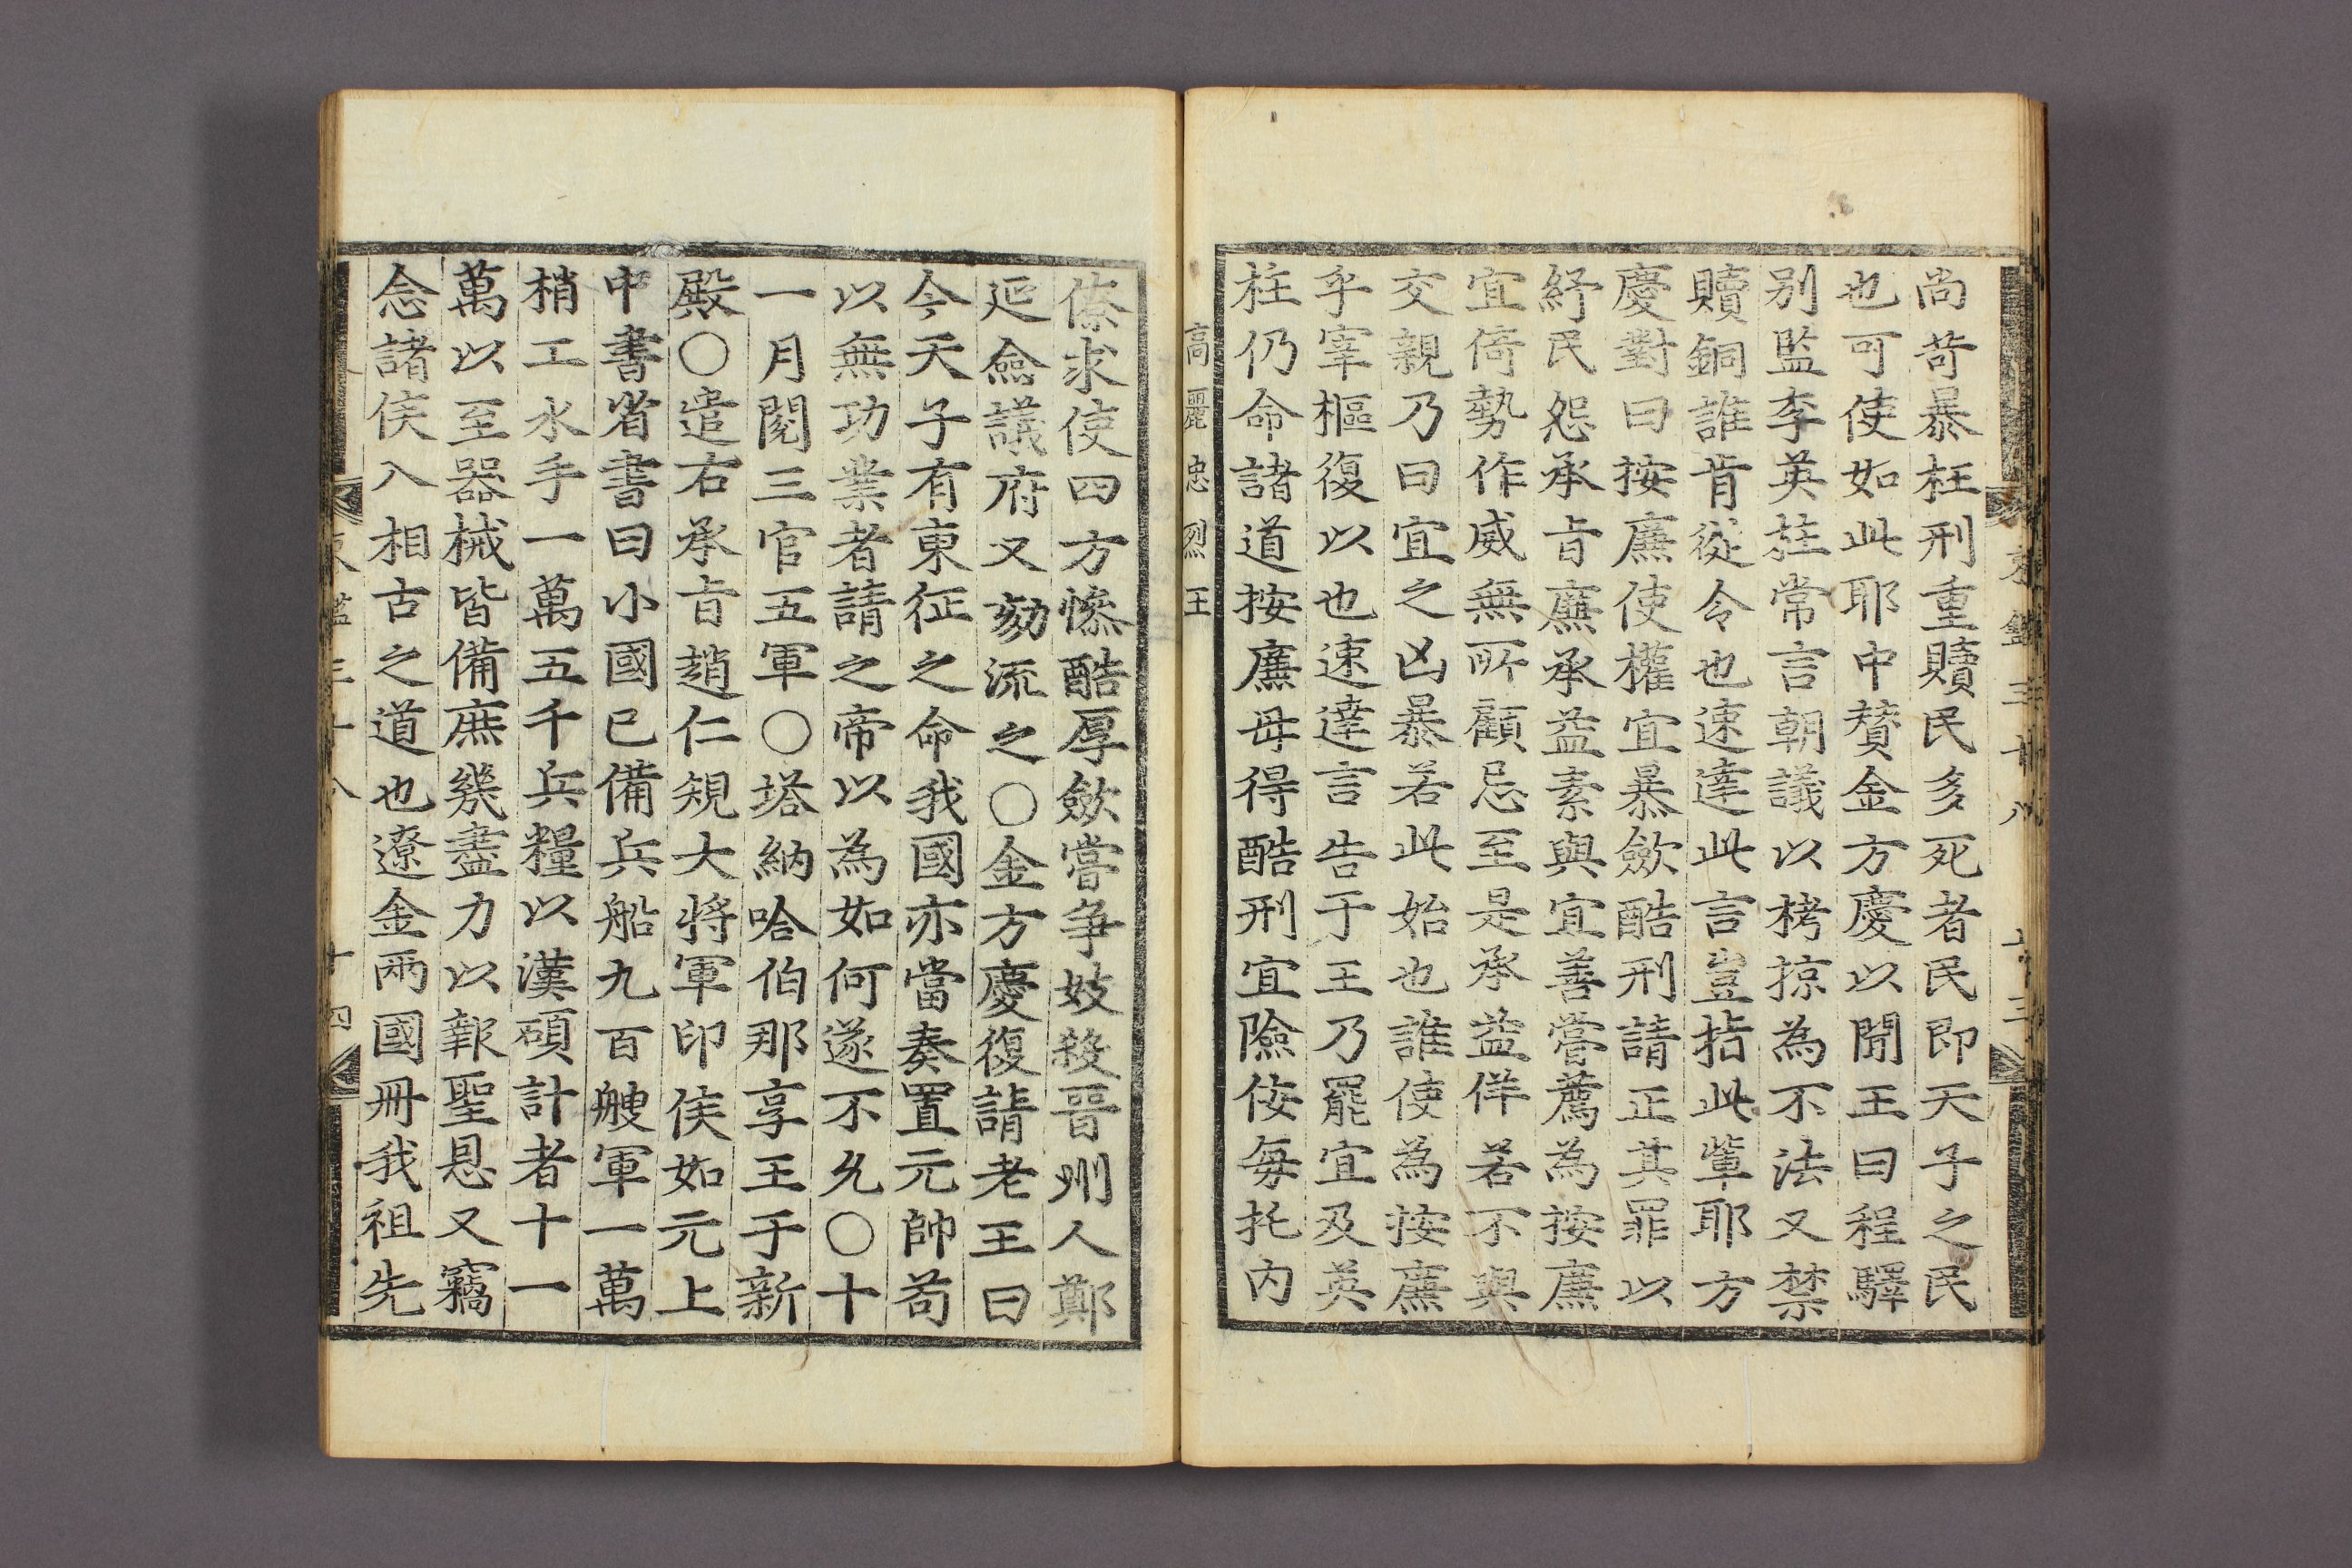 尚苛暴枉刑重贖民多死者民即天子之民
也可使如此耶中贊金方慶以聞王曰程驛
别監李英柱常言朝議以栲掠為不法又禁
贖銅誰肯從令也速達此言豈指此軰耶方
慶對曰按廉使權宜暴斂酷刑請正其罪以
紓民怨承旨廉承益素與宜善嘗薦為按廉
宜倚勢作威無所顧忌至是承益佯若不與
交親乃曰宜之凶暴若此始也誰使為按廉
乎宰樞復以也速達言告于王乃罷宜及英
柱仍命諸道按廉毋得酷刑宜險佞每托内
高麗忠烈王
傣求使四方慘酷厚斂嘗爭妓殺晋州人鄭
延僉議府又劾流之○金方慶復請老王曰
今天子有東征之命我國亦當奏置元帥苟
以無功業者請之帝以為如何遂不允○十
一月閱三官五軍○塔納哈伯那享王于新
殿○遣右承旨趙仁規大將軍印侯如元上
中書省書曰小國已備兵船九百艘軍一萬
梢工水手一萬五千兵糧以漢碩計者十一
萬以至器械皆備庶幾盡力以報聖恩又竊
念諸侯入相古之道也遼金兩國冊我祖先